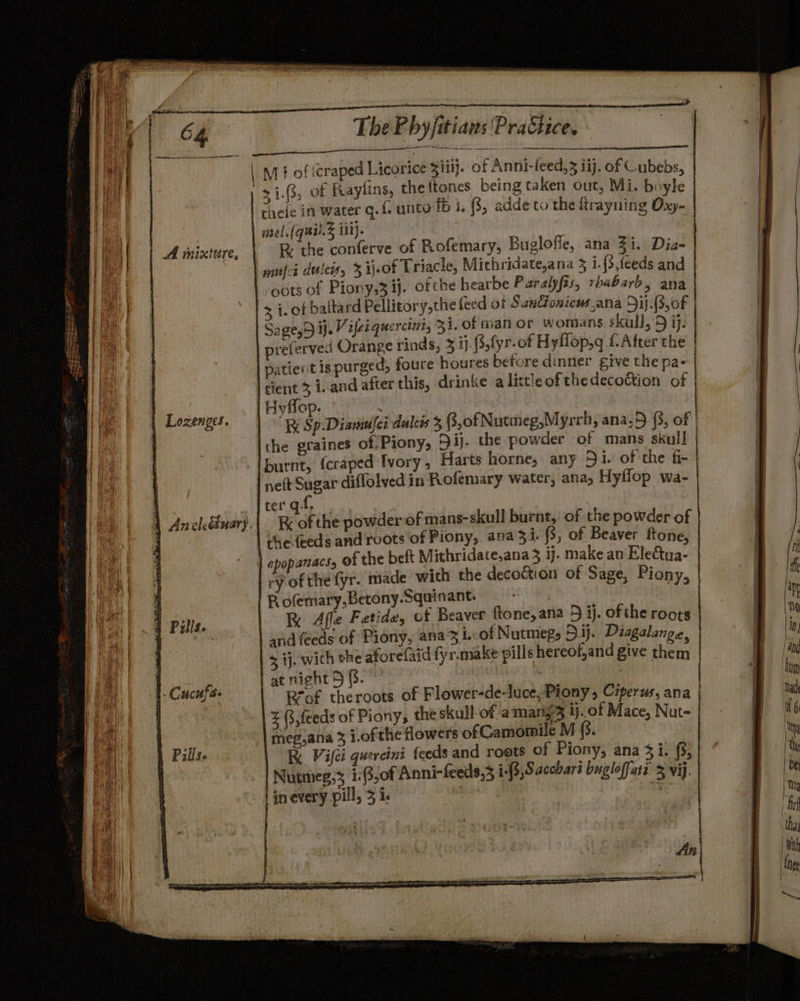 64
The Phyſitians Practice.
M ſ of ſcraped Licorice ʒiiij. of Anni-ſeed,ʒ iij. of Cubebs,
ʒ i.ß, of Rayſins, the ſtones being taken out, Mi. boyle
theſe in water q.ſ. unto ℔ i. ß, adde to the ſtrayning Oxy-
mel.ſquil.℥ iiij.
A mixture,
℞ the conſerve of Roſemary, Bugloſſe, ana ℥i. Dia-
muſci dulcis, ʒ ij.of Triacle, Mithridate,ana ʒ i.ß,ſeeds and
roots of Piony,ʒ ij. of the hearbe Paralyſis, rhabarb, ana
ʒ i. of baſtard Pellitory,the ſeed of Sanctonicus,ana ℈ij.ß,of
Sage,℈ ij. Viſci quercini, ʒi. of man or womans skull, ℈ ij.
preſerved Orange rinds, ʒ ij.ß,ſyr.of Hyſſop,q ſ.After the
patient is purged, foure houres before dinner give the pa-
tient ʒ i. and after this, drinke a little of the decoction of
Hyſſop.
Lozenges.
℞ Sp.Diamuſci dulcis ʒ ß,of Nutmeg,Myrrh, ana,℈ ß, of
the graines of Piony, ℈ij. the powder of mans skull
burnt, ſcraped Ivory, Harts horne, any ℈ i. of the fi-
neſt Sugar diſſolved in Roſemary water, ana, Hyſſop wa-
ter q.ſ.
An electuary.
℞ of the powder of mans-skull burnt, of the powder of
the ſeeds and roots of Piony, ana ʒi. ß, of Beaver ſtone,
opopanacs, of the beſt Mithridate,ana ʒ ij. make an Electua-
ry of the ſyr. made with the decoction of Sage, Piony,
Roſemary,Betony.Squinant.
Pills.
℞ Aſſe Fetide, of Beaver ſtone,ana ℈ ij. of the roots
and ſeeds of Piony, ana ʒ i. of Nutmegs ℈ ij. Diagalange,
ʒ ij. with the aforeſaid ſyr.make pills hereof,and give them
at night ℈ ß.
Cucufa.
℞ of the roots of Flower-de-luce, Piony, Ciperus, ana
℥ ß,ſeeds of Piony, the skull of a man,ʒ ij. of Mace, Nut-
meg,ana ʒ i.of the flowers of Camomile M ß.
Pills.
℞ Viſci quercini ſeeds and roots of Piony, ana ʒ i. ß,
Nutmeg,ʒ i.ß,of Anni-ſeeds,ʒ i.ß,Sacchari bugloſſati ʒ vij.
in every pill, ʒ i.
An